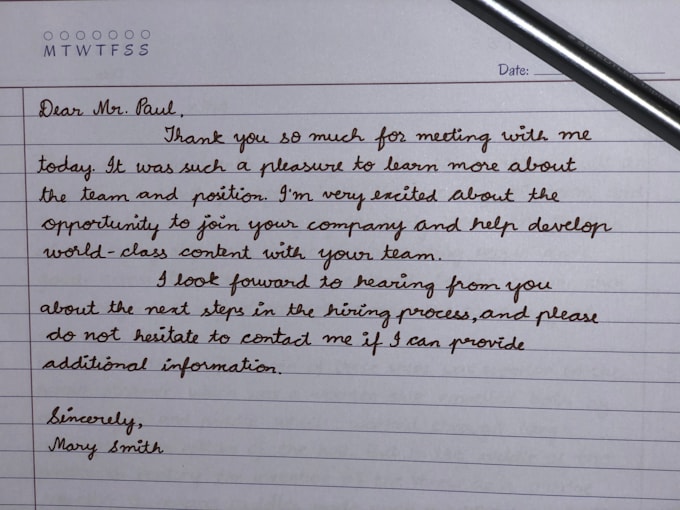 M T W T F S S
Date:
Dear Mr. Paul,
Thank you so much for meeting with me
today. It was such a pleasure to learn more about
the team and position. I'm very excited about the
opportunity to join your company and help develop
world-class content with your team.
I look forward to hearing from you
about the next steps in the hiring process, and please
do not hesitate to contact me if I can provide
additional information.
Sincerely,
Mary Smith